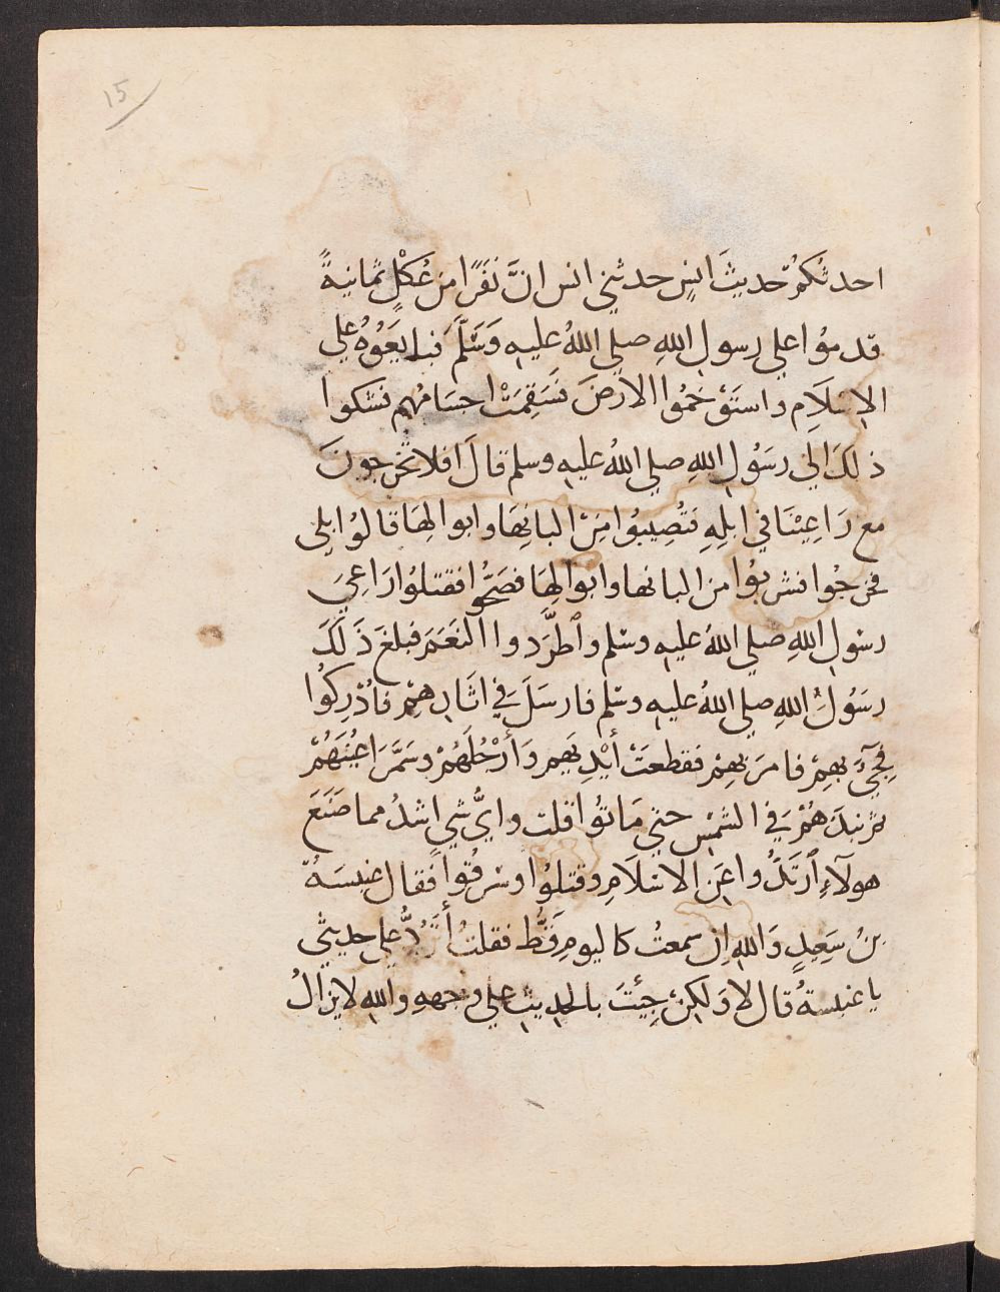 15
احدثكم حديثَ انسٍ حدثني انس انَّ نَفَرًا من عُكْلٍ ثمانيةً
قدموُا علي رسول اللهِ صلي اللهُ عليه وَسَلَّمَ فبايَعُوهُ علي
الإسلَامِ واستَوْخَمُوا الارضَ فَسَقِمَتْ اجسَامُهم فشكوا
ذلكَ الي رسُولِ اللهِ صلي اللهُ عليه وسلم قالَ افلا تخرجونَ
مع رَاعِيْنَا في ابلِهِ فتُصِيبُوا مِنْ البانِهَا وابوالِهَا قالوُا بلى
فخرجُوا فشربوُا من البانها وابوالِهَا فصَحُّوا فقتلوُا رَاعِيَ
رسُولِ اللهِ صلي اللهُ عليه وسلم وٱطَّرَدوا النَعَمَ فبلغَ ذَلكَ
رسُولَ اللهِ صلي اللهُ عليه وسلم فارسَلَ في اثَارِهِمْ فاُدْرِكُوا
فجِيَٓ بهِمْ فامرَ بهِمْ فقطعَتْ أيْدِيَهم وَأرْجُلَهُمْ وسَمَّرَ اعيُنَهُمْ
ثم نبذَهُمْ في الشمْسِ حتي مَاتوُا قلت وايُّ شيٍ اشدُ مما صَنَعَ
هولآءِ ٱرتَدُّوا عَنِ الاسلَامِ وقتلوُا وسرقُوا فقال عنبسَةُ
بنُ سَعِيدٍ وَاللهِ اِن سمعتُ كاليومِ قَطُّ فقلتُ أتَرُدُّ علي حديثي
يا عنبسةُ قال لا وَلكِنْ جِئتَ بالحديثِ علي وجههِ واللهِ لا يزالُ